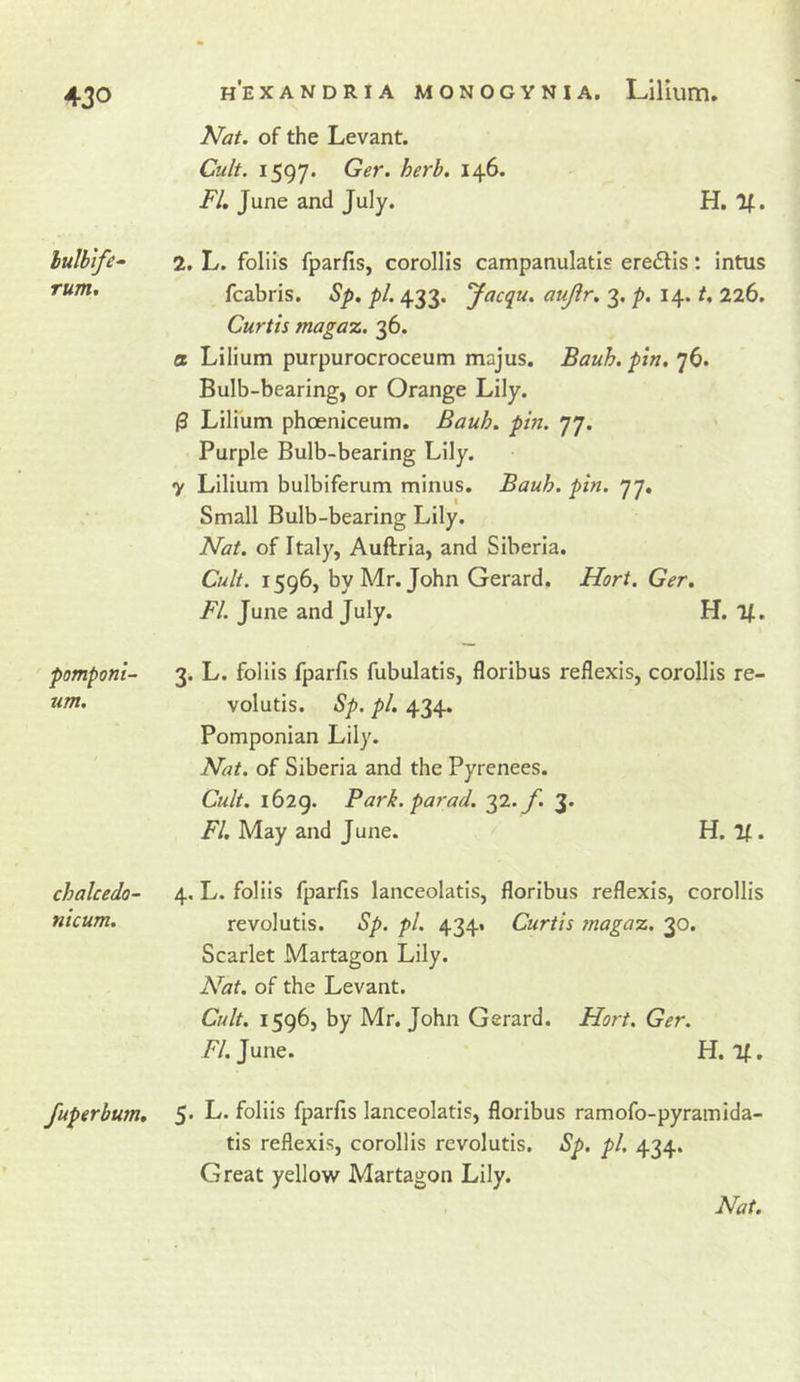 430 H'EXANDRIA MONOGYNIA. Lilium.
Nat. of the Levant.
Cult. 1597. Ger. herb. 146.
Fl. June and July. H. ♃.
bulbife- 2. L. foliis ſparſis, corollis campanulatis erectis: intus
rum. ſcabris. Sp. pl. 433. Jacqu. auſtr. 3. p. 14. t. 226.
Curtis magaz. 36.
α Lilium purpurocroceum majus. Bauh. pin. 76.
Bulb-bearing, or Orange Lily.
β Lilium phœniceum. Bauh. pin. 77.
Purple Bulb-bearing Lily.
γ Lilium bulbiferum minus. Bauh. pin. 77.
Small Bulb-bearing Lily.
Nat. of Italy, Auſtria, and Siberia.
Cult. 1596, by Mr. John Gerard. Hort. Ger.
Fl. June and July. H. ♃.
pomponi- 3. L. foliis ſparſis ſubulatis, floribus reflexis, corollis re-
um. volutis. Sp. pl. 434.
Pomponian Lily.
Nat. of Siberia and the Pyrenees.
Cult. 1629. Park. parad. 32. f. 3.
Fl. May and June. H. ♃.
chalcedo- 4. L. foliis ſparſis lanceolatis, floribus reflexis, corollis
nicum. revolutis. Sp. pl. 434. Curtis magaz. 30.
Scarlet Martagon Lily.
Nat. of the Levant.
Cult. 1596, by Mr. John Gerard. Hort. Ger.
Fl. June. H. ♃.
ſuperbum. 5. L. foliis ſparſis lanceolatis, floribus ramoſo-pyramida-
tis reflexis, corollis revolutis. Sp. pl. 434.
Great yellow Martagon Lily.
Nat.